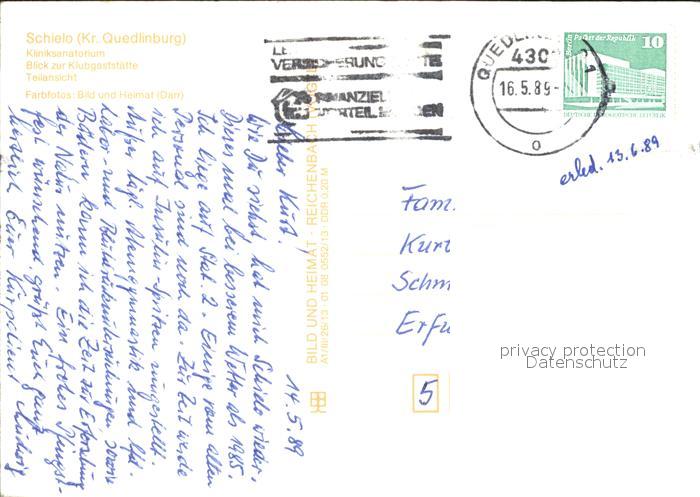 Schielo (Kr. Quedlinburg)
Kliniksanatorium
Blick zur Klubgaststätte
Teilansicht
Farbfotos: Bild und Heimat (Darr)
VERSICHERUNG
FINANZIELL
VORTEIL
QUEDLIN
430
16.5.89
1
o
Berlin Palast der Republik
10
DEUTSCHE DEMOKRATISCHE REPUBLIK
erled. 13.6.89
14.5.89
Lieber Kurt!
Wie Du siehst, hat mich Schielo wieder.
Dieses mal bei besserem Wetter als 1985.
Ich liege auf Stat. 2. Einige vom alten
Personal sind noch da. Zur Zeit werde
ich auf Insulin-Spritzen umgestellt.
Außer tägl. Atemgymnastik und
Labor- und Blutuntersuchungen sowie
Bädern kann ich die Zeit zur Erholung
der Natur nutzen. Ein frohes Pfingst-
fest wünschend, grüßt Euch ganz
herzlich Euer
BILD UND HEIMAT · REICHENBACH
A1/III/26/13 · 01 08 0552/13 · DDR 0,20 M
Fam.
Kurt
Schm
Erfu
5
privacy protection
Datenschutz